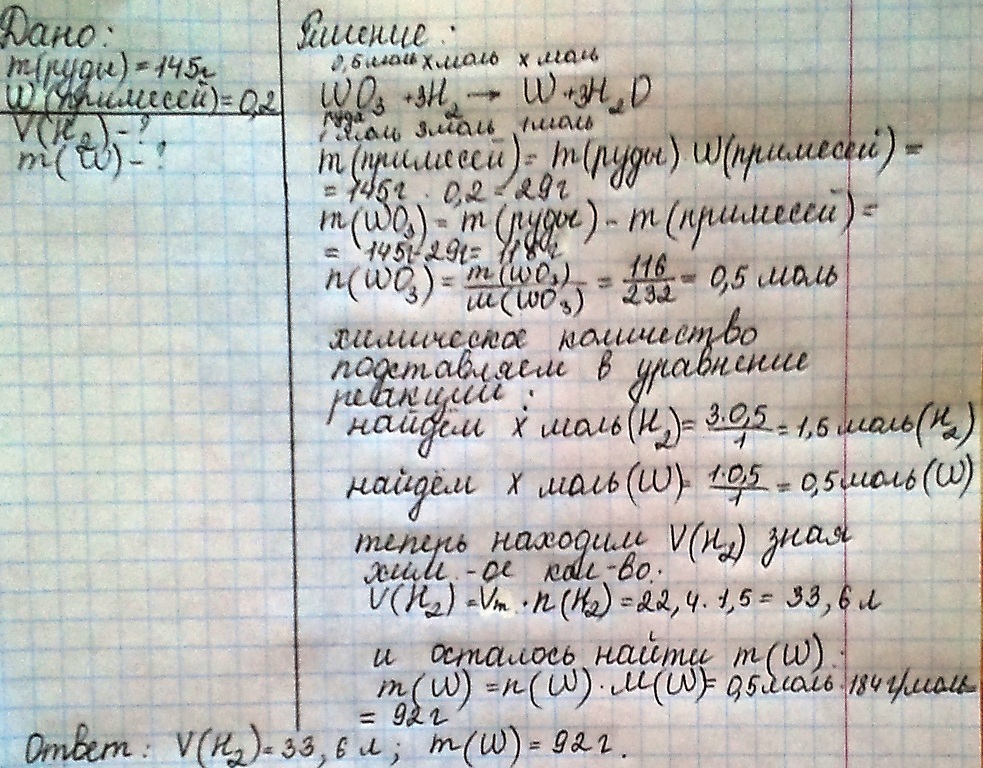 Дано:
m(руды) = 145г
W(примесей) = 0,2
V(H₂) - ?
m(W) - ?
Решение:
0,5моль xмоль x моль
WO₃ + 3H₂ → W + 3H₂O
руда
1моль 3моль 1моль
m(примесей) = m(руды) W(примесей) =
= 145г · 0,2 = 29г
m(WO₃) = m(руды) - m(примесей) =
= 145г-29г= 116г
n(WO₃) = m(WO₃)/M(WO₃) = 116/232 = 0,5 моль
химическое количество
подставляем в уравнение
реакции:
найдём x моль(H₂)= 3·0,5/1 = 1,5 моль(H₂)
найдём x моль(W)= 1·0,5/1 = 0,5моль(W)
теперь находим V(H₂) зная
хим.-ое кол-во:
V(H₂) = Vm · n(H₂) = 22,4 · 1,5 = 33,6 л
и осталось найти m(W):
m(W) = n(W) · M(W)= 0,5моль·184г/моль=
= 92г
Ответ: V(H₂)= 33,6 л; m(W) = 92г.